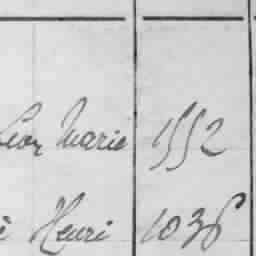 Léon Marie 1552
Henri 1036